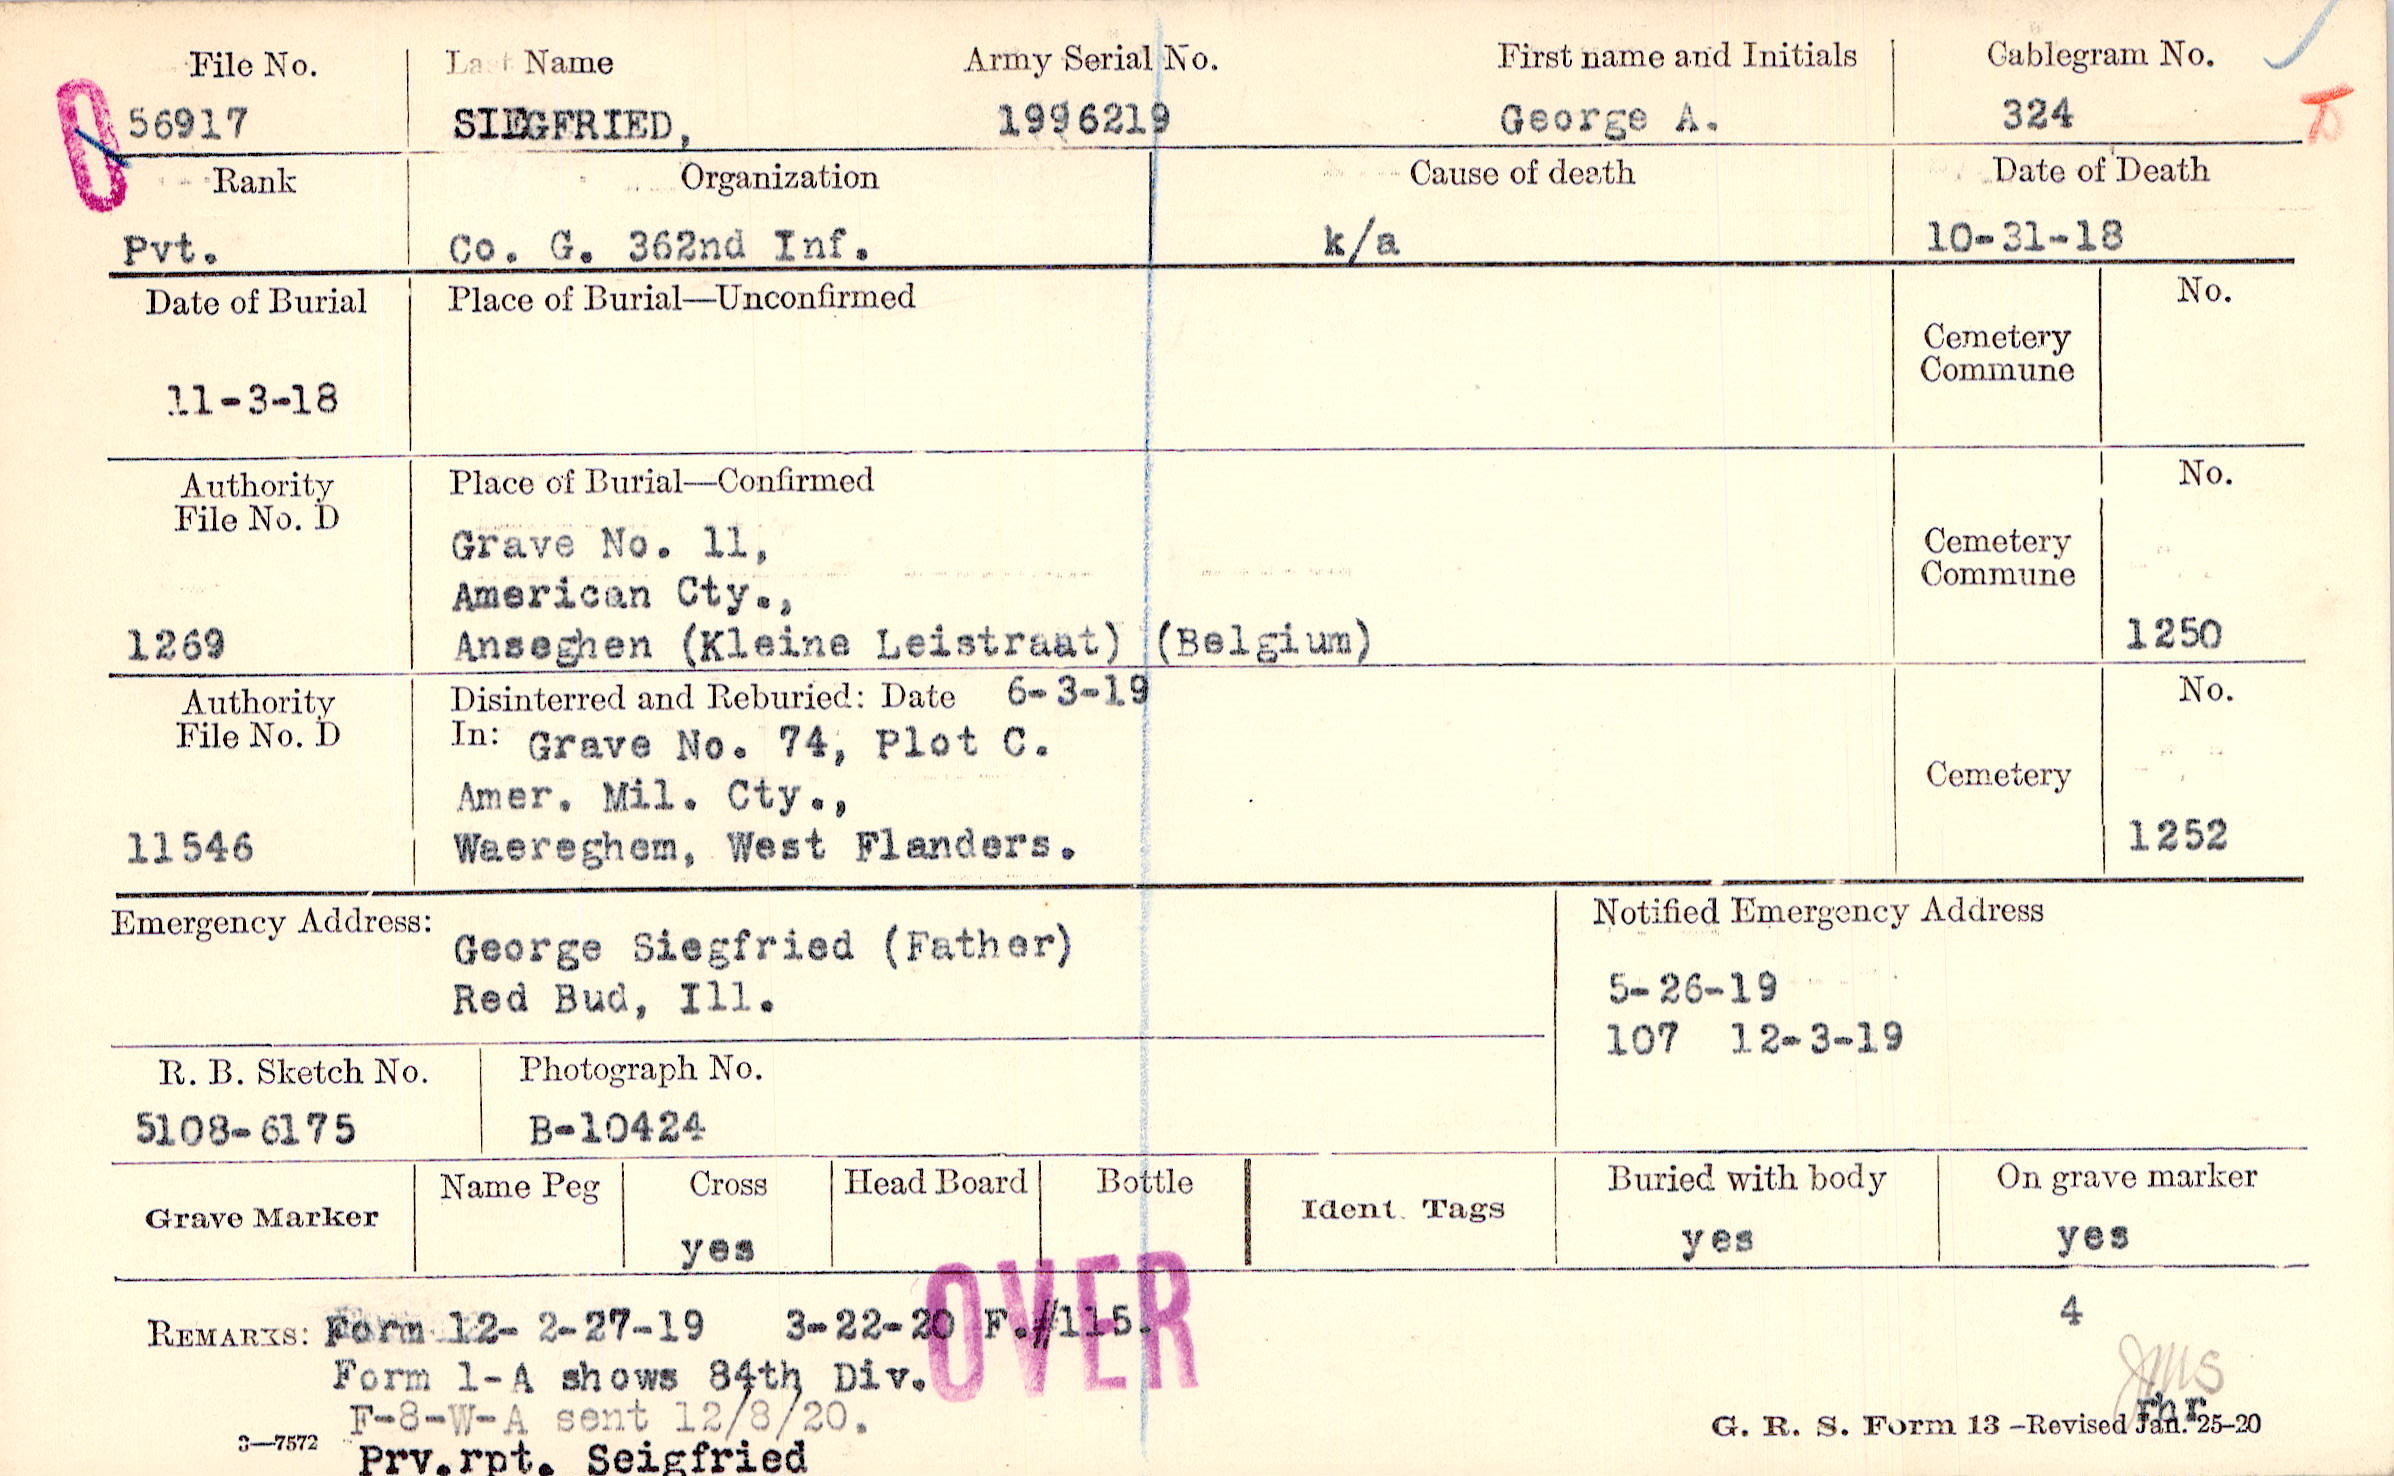 File No. Last Name Army Serial No. First name and Initials Cablegram No.
56917 SIEGFRIED, 1996219 George A. 324
Rank Organization Cause of death Date of Death
Pvt. Co. G. 362nd Inf. k/a 10-31-18
Date of Burial Place of Burial—Unconfirmed No.
Cemetery
Commune
11-3-18
Authority Place of Burial—Confirmed No.
File No. D
Grave No. 11, Cemetery
American Cty., Commune
1269 Anseghen (Kleine Leistraat) (Belgium) 1250
Authority Disinterred and Reburied: Date 6-3-19 No.
File No. D In: Grave No. 74, Plot C.
Amer. Mil. Cty., Cemetery
11546 Waereghem, West Flanders. 1252
Emergency Address: Notified Emergency Address
George Siegfried (Father)
Red Bud, Ill.
5-26-19
107 12-3-19
R. B. Sketch No. Photograph No.
5108-6175 B-10424
Grave Marker Name Peg Cross Head Board Bottle Ident. Tags Buried with body On grave marker
yes yes yes
OVER
REMARKS: Form 12- 2-27-19 3-22-20 F.#115. 4
Form 1-A shows 84th Div.
F-8-W-A sent 12/8/20.
JMS
rhr
3—7572 G. R. S. Form 13 -Revised Jan. 25-20
Prv.rpt. Seigfried